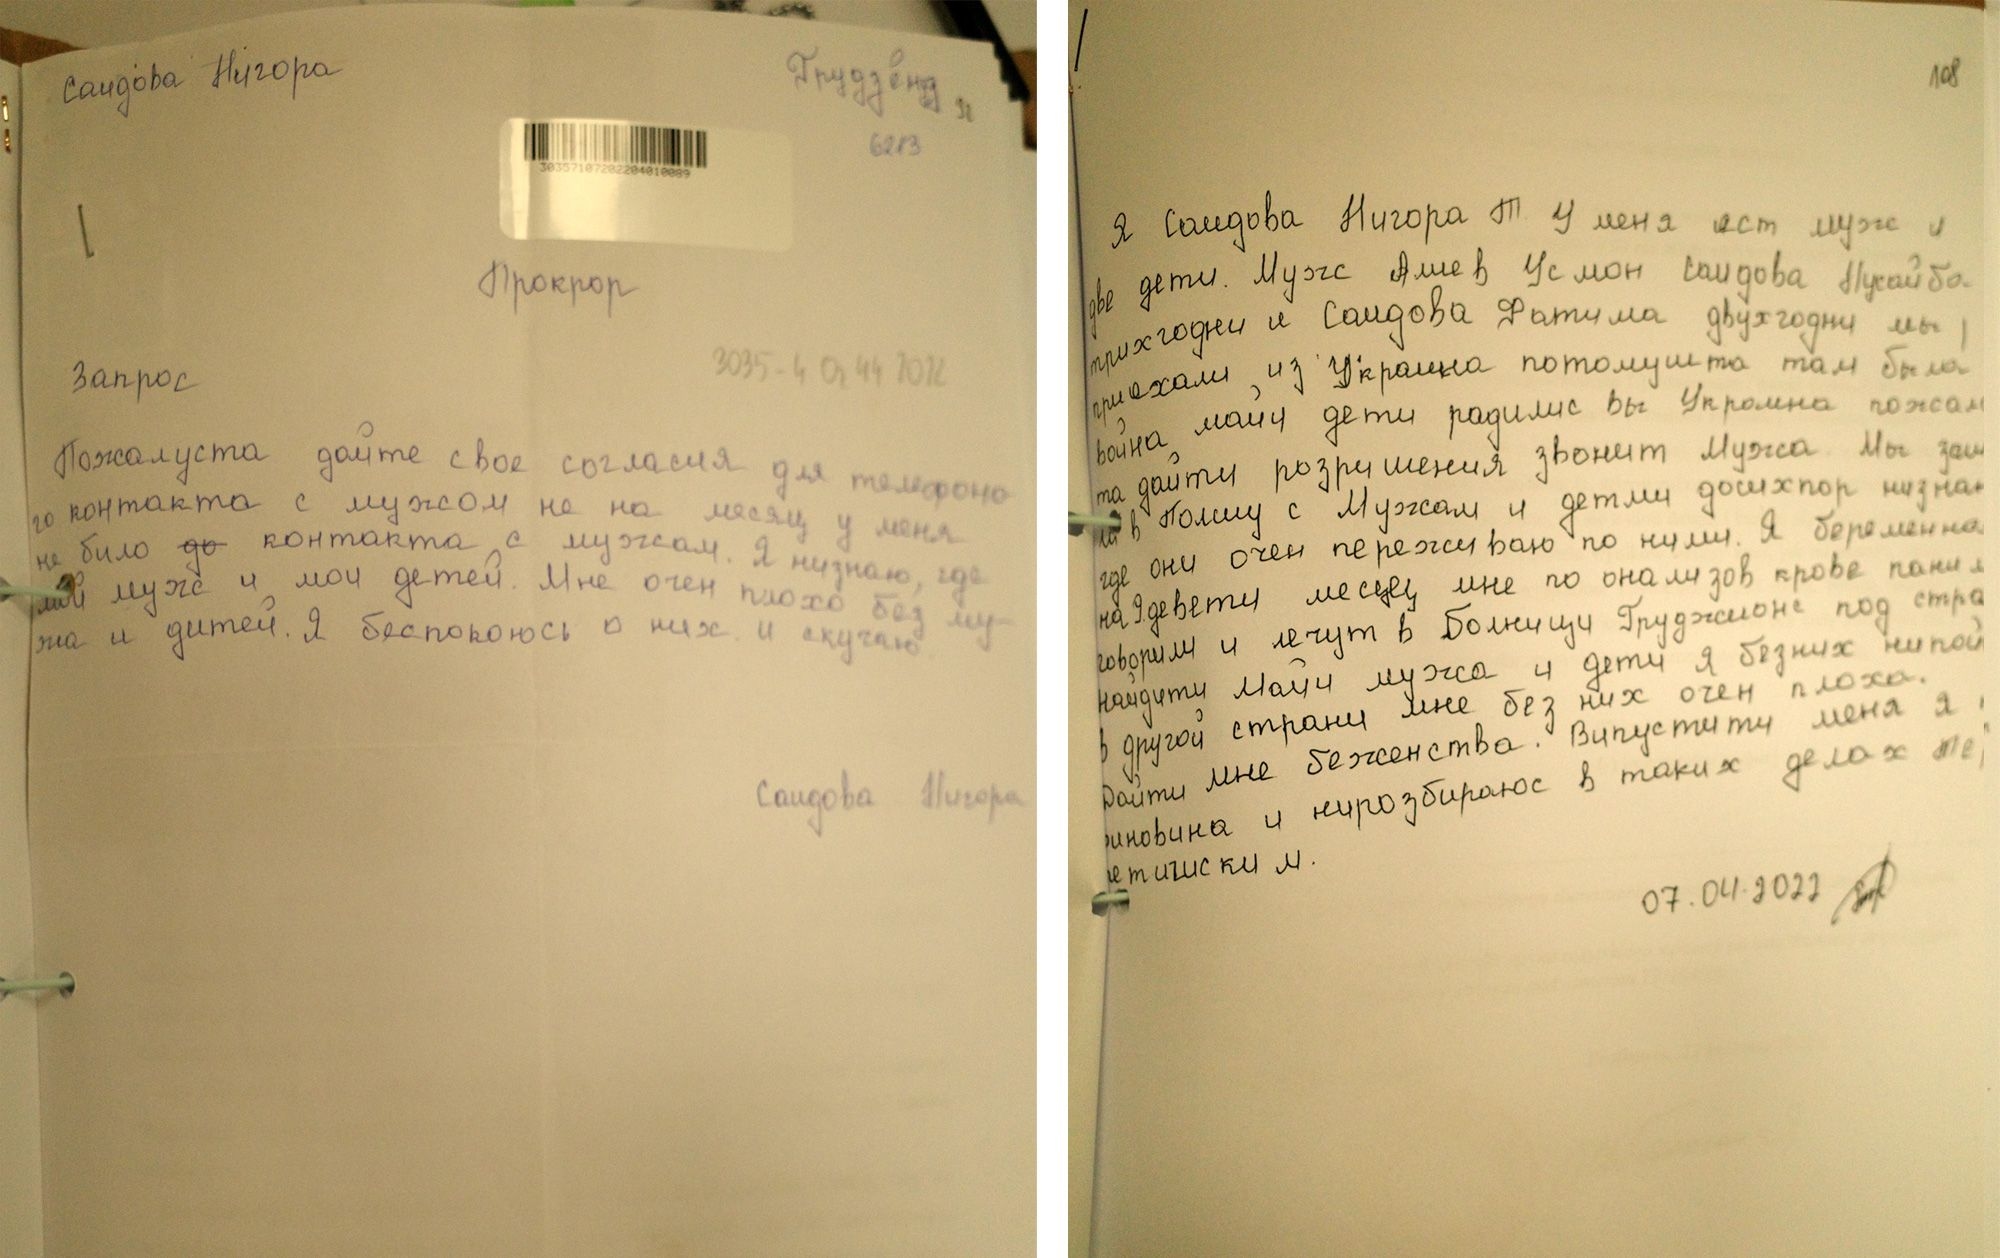 Саидова Нигора
Грудзёндз
6213
30357107202204010089
Прокрор
3035-4 Oz 44 2022
Запрос
Пожалуста дайте свое согласия для телефоно
го контакта с мужсом не на месяц у меня
не било до контакта с мужам. Я низнаю, где
мой муж и мои детей. Мне очен плохо без му-
жа и дитей. Я беспокоюсь о них и скучаю
Саидова Нигора
108
Я Саидова Нигора Т. У меня ест муж и
две дети. Муж Алиев Усмон Саидова
трихгодни и Саидова Фатима двухгодни мы
приехали из Украина потомушта там была
война майи дети радилис вы Украина пожал
та дайти розришения звонит Мужа. Мы
в Полшу с Мужам и детми досихпор низна
где они очен переживаю по ними. Я беременна
на 9девети месец мне по онализов крове пани
говорили и лечут в Болници под стра
найдити Майи мужа и дети я безних
в другой страни мне без них очен плоха.
Дайти мне беженства. Випустити меня я
виновина и нирозбираюс в таких делах те
етическим.
07.04.2022